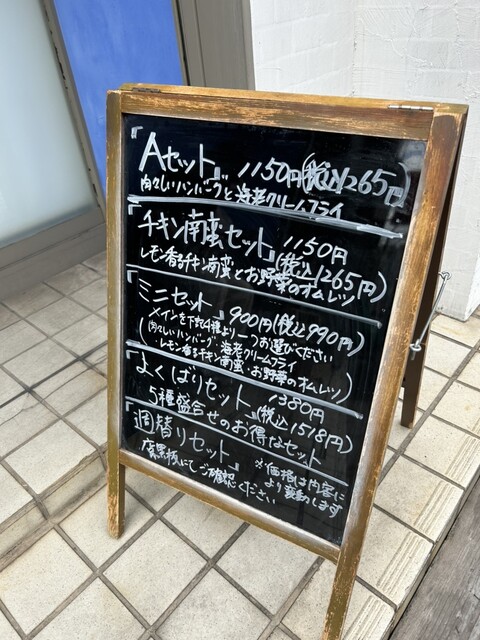 『Aセット』 1150円(税込1265円)
肉々しいハンバーグと海老クリームフライ
『チキン南蛮セット』1150円
(税込1265円)
レモン香るチキン南蛮とお野菜のオムレツ
『ミニセット』900円(税込990円)
メインを下記4種より一つお選びください
(肉々しいハンバーグ・海老クリームフライ
・レモン香るチキン南蛮・お野菜のオムレツ)
『よくばりセット』1380円
(税込1518円)
5種盛合せのお得なセット
『週替りセット』
※価格は内容に
より変動します
店黒板にてご確認ください